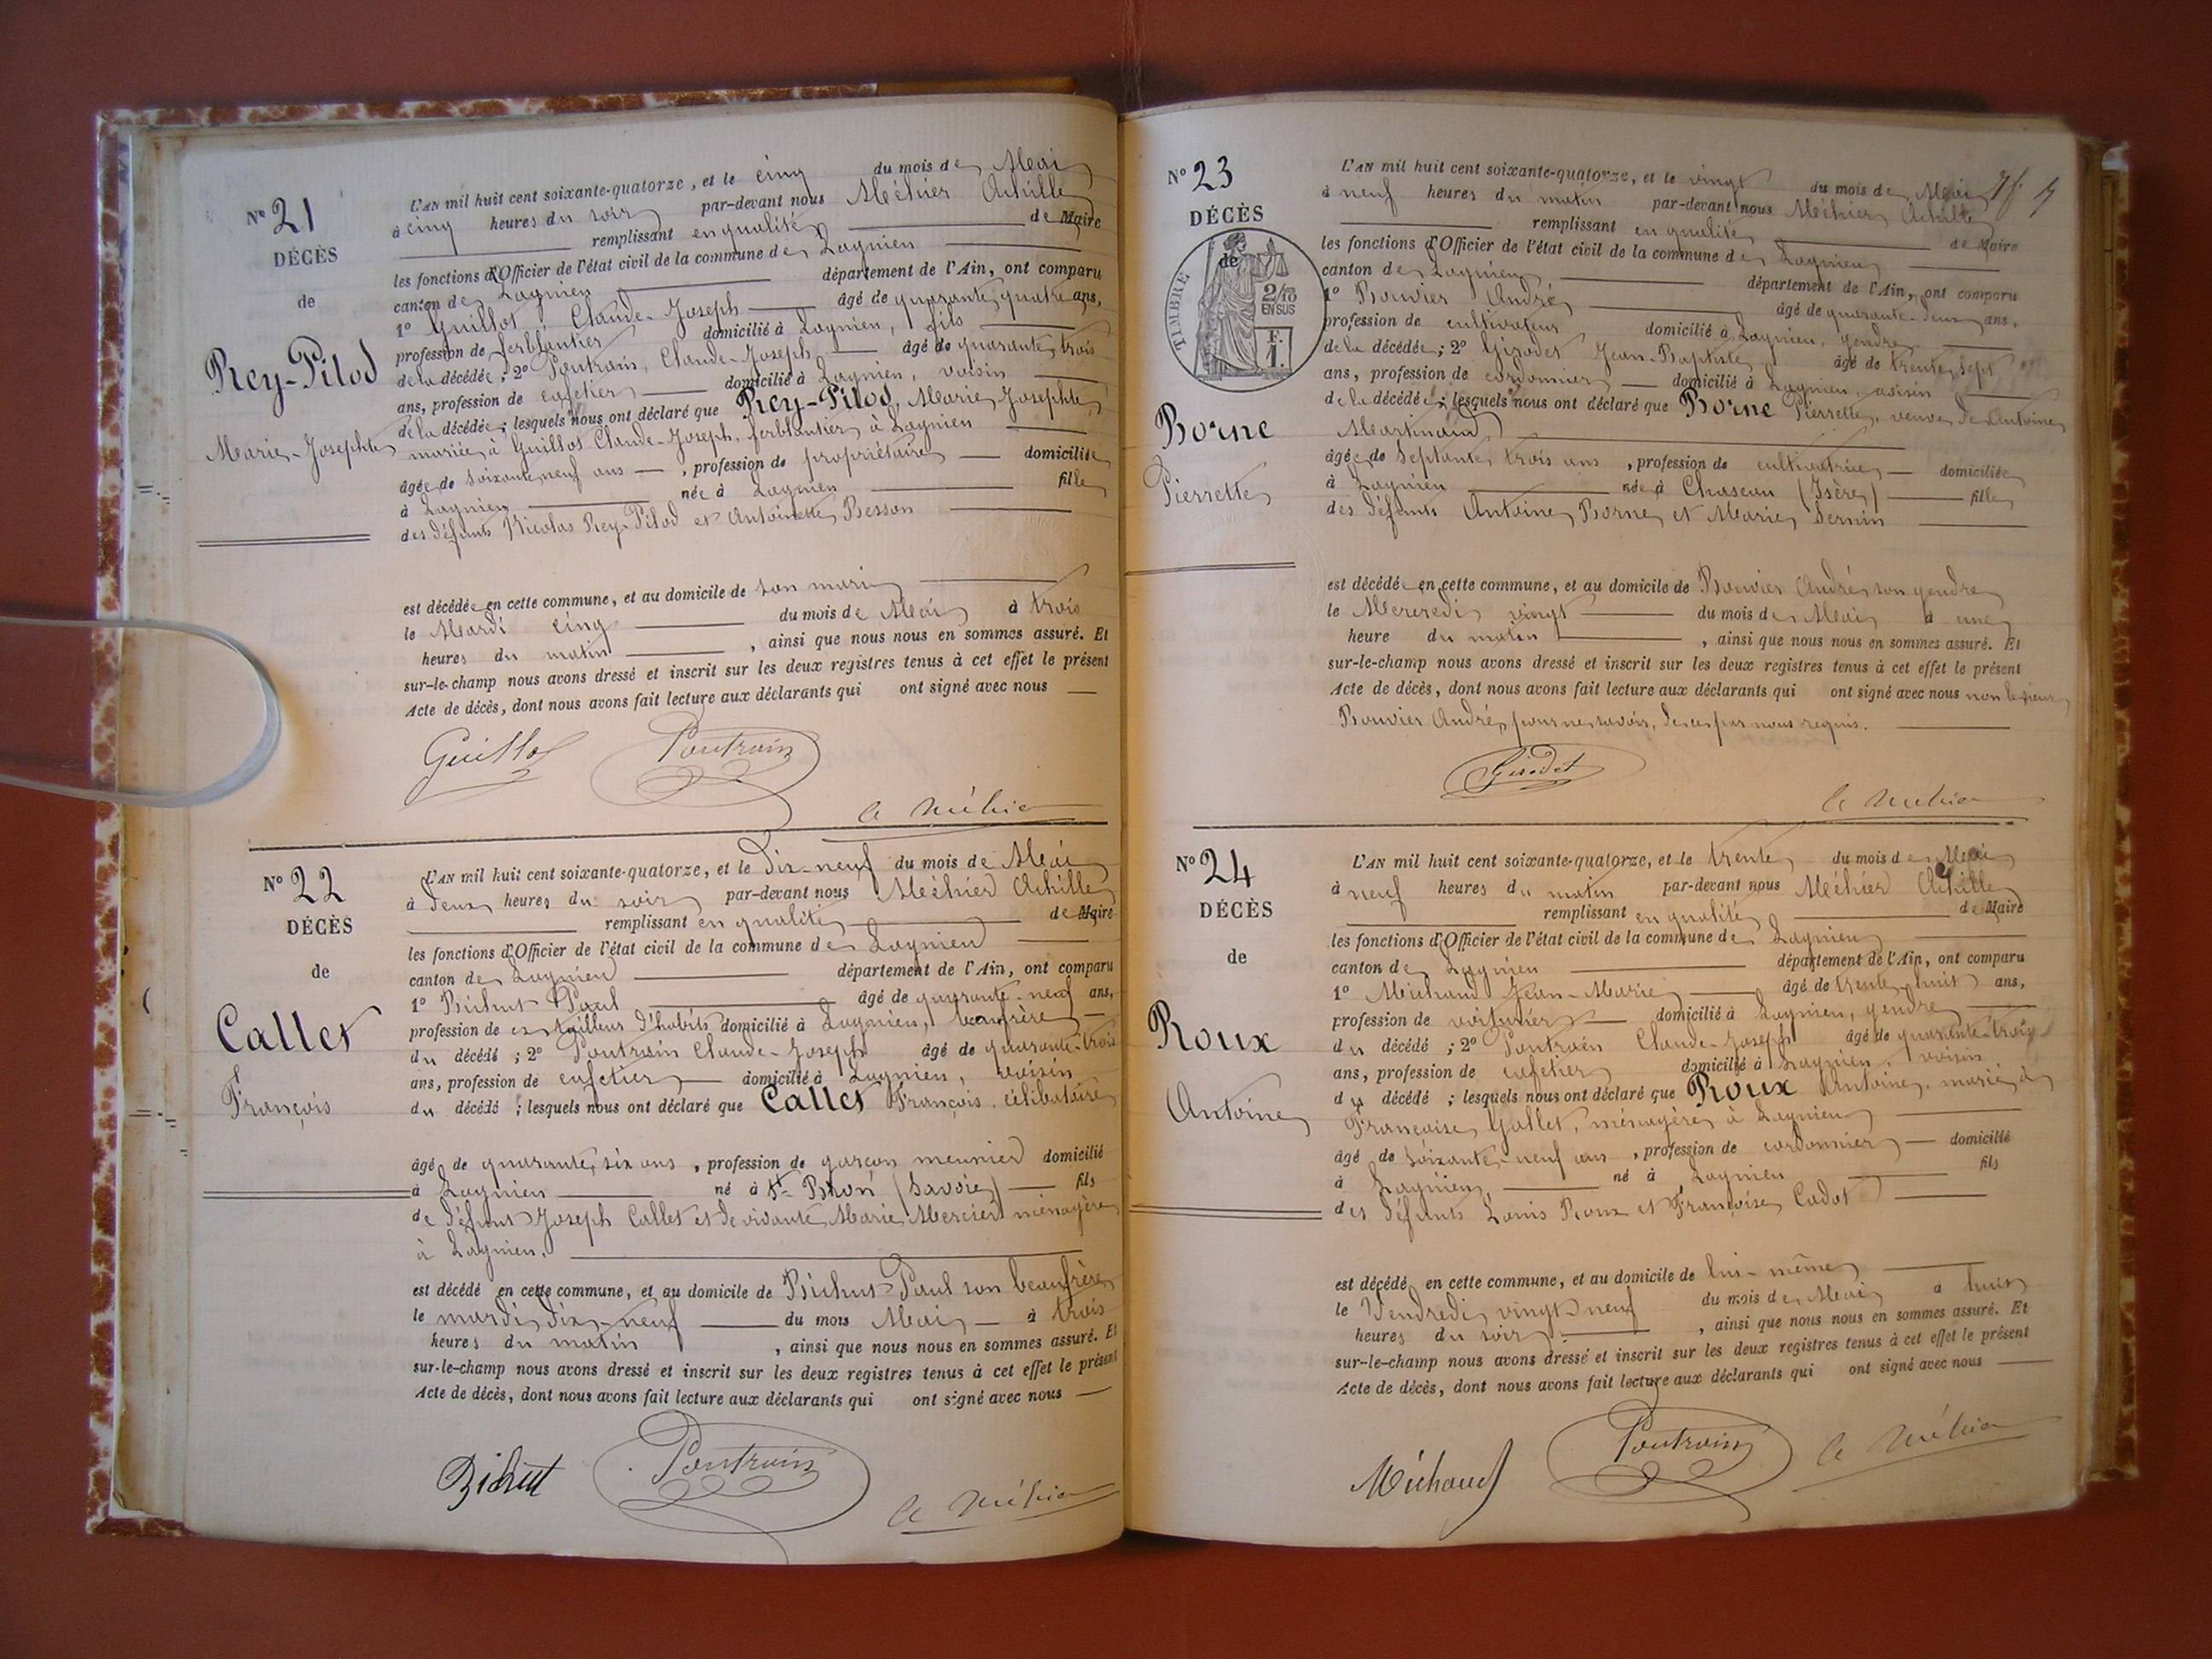 N° 21
DÉCÈS
de
Rey-Pilod
Marie-Josephte
L'AN mil huit cent soixante-quatorze, et le cinq du mois de Mai
à cinq heures du soir par-devant nous Méhier Achille
remplissant en qualité de Maire
les fonctions d'Officier de l'état civil de la commune de Lagnieu
canton de Lagnieu département de l'Ain, ont comparu
1° Guillot, Claude-Joseph âgé de quarante quatre ans,
profession de ferblantier domicilié à Lagnieu, fils
de la décédée; 2° Poutrain, Claude-Joseph âgé de quarante trois
ans, profession de cafetier domicilié à Lagnieu, voisin
de la décédée; lesquels nous ont déclaré que Rey-Pilod, Marie Josephte,
mariée à Guillot Claude-Joseph, ferblantier à Lagnieu
âgée de soixante neuf ans, profession de propriétaire domiciliée
à Lagnieu née à Lagnieu fille
des défunts Nicolas Rey-Pilod et Antoinette Besson
est décédée en cette commune, et au domicile de son mari
le Mardi cinq du mois de Mai à trois
heures du matin, ainsi que nous nous en sommes assuré. Et
sur-le-champ nous avons dressé et inscrit sur les deux registres tenus à cet effet le présent
Acte de décès, dont nous avons fait lecture aux déclarants qui ont signé avec nous
Guillot Poutrain
A Méhier
N° 22
DÉCÈS
de
Callet
François
L'AN mil huit cent soixante-quatorze, et le Dix-neuf du mois de Mai
à deux heures du soir par-devant nous Méhier Achille
remplissant en qualité de Maire
les fonctions d'Officier de l'état civil de la commune de Lagnieu
canton de Lagnieu département de l'Ain, ont comparu
1° Bichut Paul âgé de quarante-neuf ans,
profession de ex tailleur d'habits domicilié à Lagnieu, beaufrère
du décédé; 2° Poutrain Claude-Joseph âgé de quarante-trois
ans, profession de cafetier domicilié à Lagnieu, voisin
du décédé; lesquels nous ont déclaré que Callet François, célibataire
âgé de quarante six ans, profession de garçon meunier domicilié
à Lagnieu né à St (Savoie) fils
de défunt Joseph Callet et de vivante Marie Mercier ménagère
à Lagnieu.
est décédé en cette commune, et au domicile de Bichut Paul son beaufrère
le mardi dix-neuf du mois Mai à trois
heures du matin, ainsi que nous nous en sommes assuré. Et
sur-le-champ nous avons dressé et inscrit sur les deux registres tenus à cet effet le présent
Acte de décès, dont nous avons fait lecture aux déclarants qui ont signé avec nous
Bichut Poutrain A Méhier
N° 23
DÉCÈS
de
TIMBRE
2/10
EN SUS
F.
1.
Borne
Pierrette
L'AN mil huit cent soixante-quatorze, et le vingt du mois de Mai
à neuf heures du matin par-devant nous Méhier Achille
remplissant en qualité de Maire
les fonctions d'Officier de l'état civil de la commune de Lagnieu
canton de Lagnieu département de l'Ain, ont comparu
1° Bouvier André âgé de quarante-deux ans,
profession de cultivateur domicilié à Lagnieu, gendre
de la décédée; 2° Girodet Jean-Baptiste âgé de trente sept
ans, profession de cordonnier domicilié à Lagnieu, voisin
de la décédée; lesquels nous ont déclaré que Borne Pierrette, veuve de Antoine
Martinand
âgée de septante trois ans, profession de cultivatrice domiciliée
à Lagnieu née à (Isère) fille
des défunts Antoine Borne et Marie Sernin
est décédée en cette commune, et au domicile de Bouvier André son gendre
le Mercredi vingt du mois de Mai à une
heure du matin, ainsi que nous nous en sommes assuré. Et
sur-le-champ nous avons dressé et inscrit sur les deux registres tenus à cet effet le présent
Acte de décès, dont nous avons fait lecture aux déclarants qui ont signé avec nous non le sieur
Bouvier André, pour ne savoir, de ce par nous requis.
Girodet
A Méhier
N° 24
DÉCÈS
de
Roux
Antoine
L'AN mil huit cent soixante-quatorze, et le trente du mois de Mai
à neuf heures du matin par-devant nous Méhier Achille
remplissant en qualité de Maire
les fonctions d'Officier de l'état civil de la commune de Lagnieu
canton de Lagnieu département de l'Ain, ont comparu
1° Michaud Jean-Marie âgé de trente huit ans,
profession de voiturier domicilié à Lagnieu, gendre
du décédé; 2° Poutrain Claude-Joseph âgé de quarante-trois
ans, profession de cafetier domicilié à Lagnieu, voisin
du décédé; lesquels nous ont déclaré que Roux Antoine, marié à
Françoise Gallet, ménagère à Lagnieu
âgé de soixante-neuf ans, profession de cordonnier domicilié
à Lagnieu, né à Lagnieu fils
des défunts Louis Roux et Françoise Cadot
est décédé en cette commune, et au domicile de lui-même
le Vendredi vingt neuf du mois de Mai à huit
heures du soir, ainsi que nous nous en sommes assuré. Et
sur-le-champ nous avons dressé et inscrit sur les deux registres tenus à cet effet le présent
Acte de décès, dont nous avons fait lecture aux déclarants qui ont signé avec nous
Michaud Poutrain A Méhier